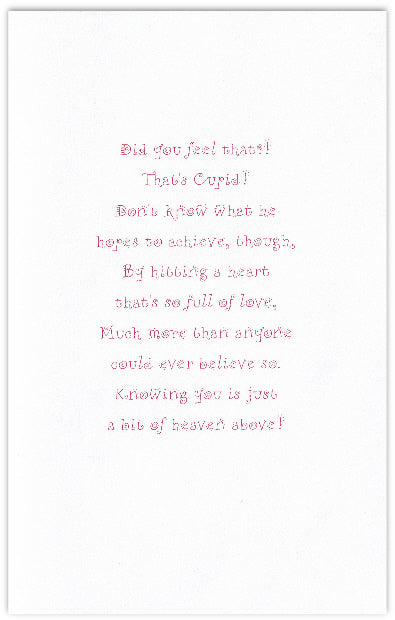 Did you feel that?!
That's Cupid!
Don't know what he
hopes to achieve, though,
By hitting a heart
that's so full of love,
Much more than anyone
could ever believe so.
Knowing you is just
a bit of heaven above!